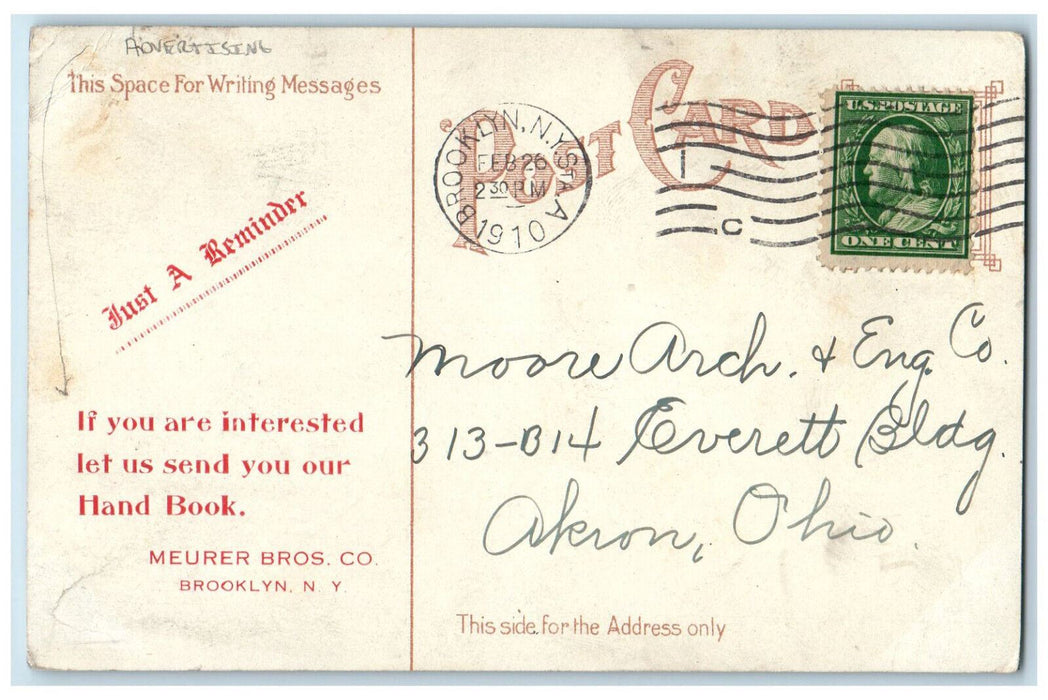 ADVERTISING
This Space For Writing Messages
Just A Reminder
If you are interested
let us send you our
Hand Book.
MEURER BROS. CO.
BROOKLYN, N. Y.
POST CARD
BROOKLYN, N.Y. STA. A
FEB 26
2 30 P.M.
1910
1
C
U.S. POSTAGE
ONE CENT
Moore Arch. & Eng. Co.
313-B14 Everett Bldg.
Akron, Ohio.
This side for the Address only